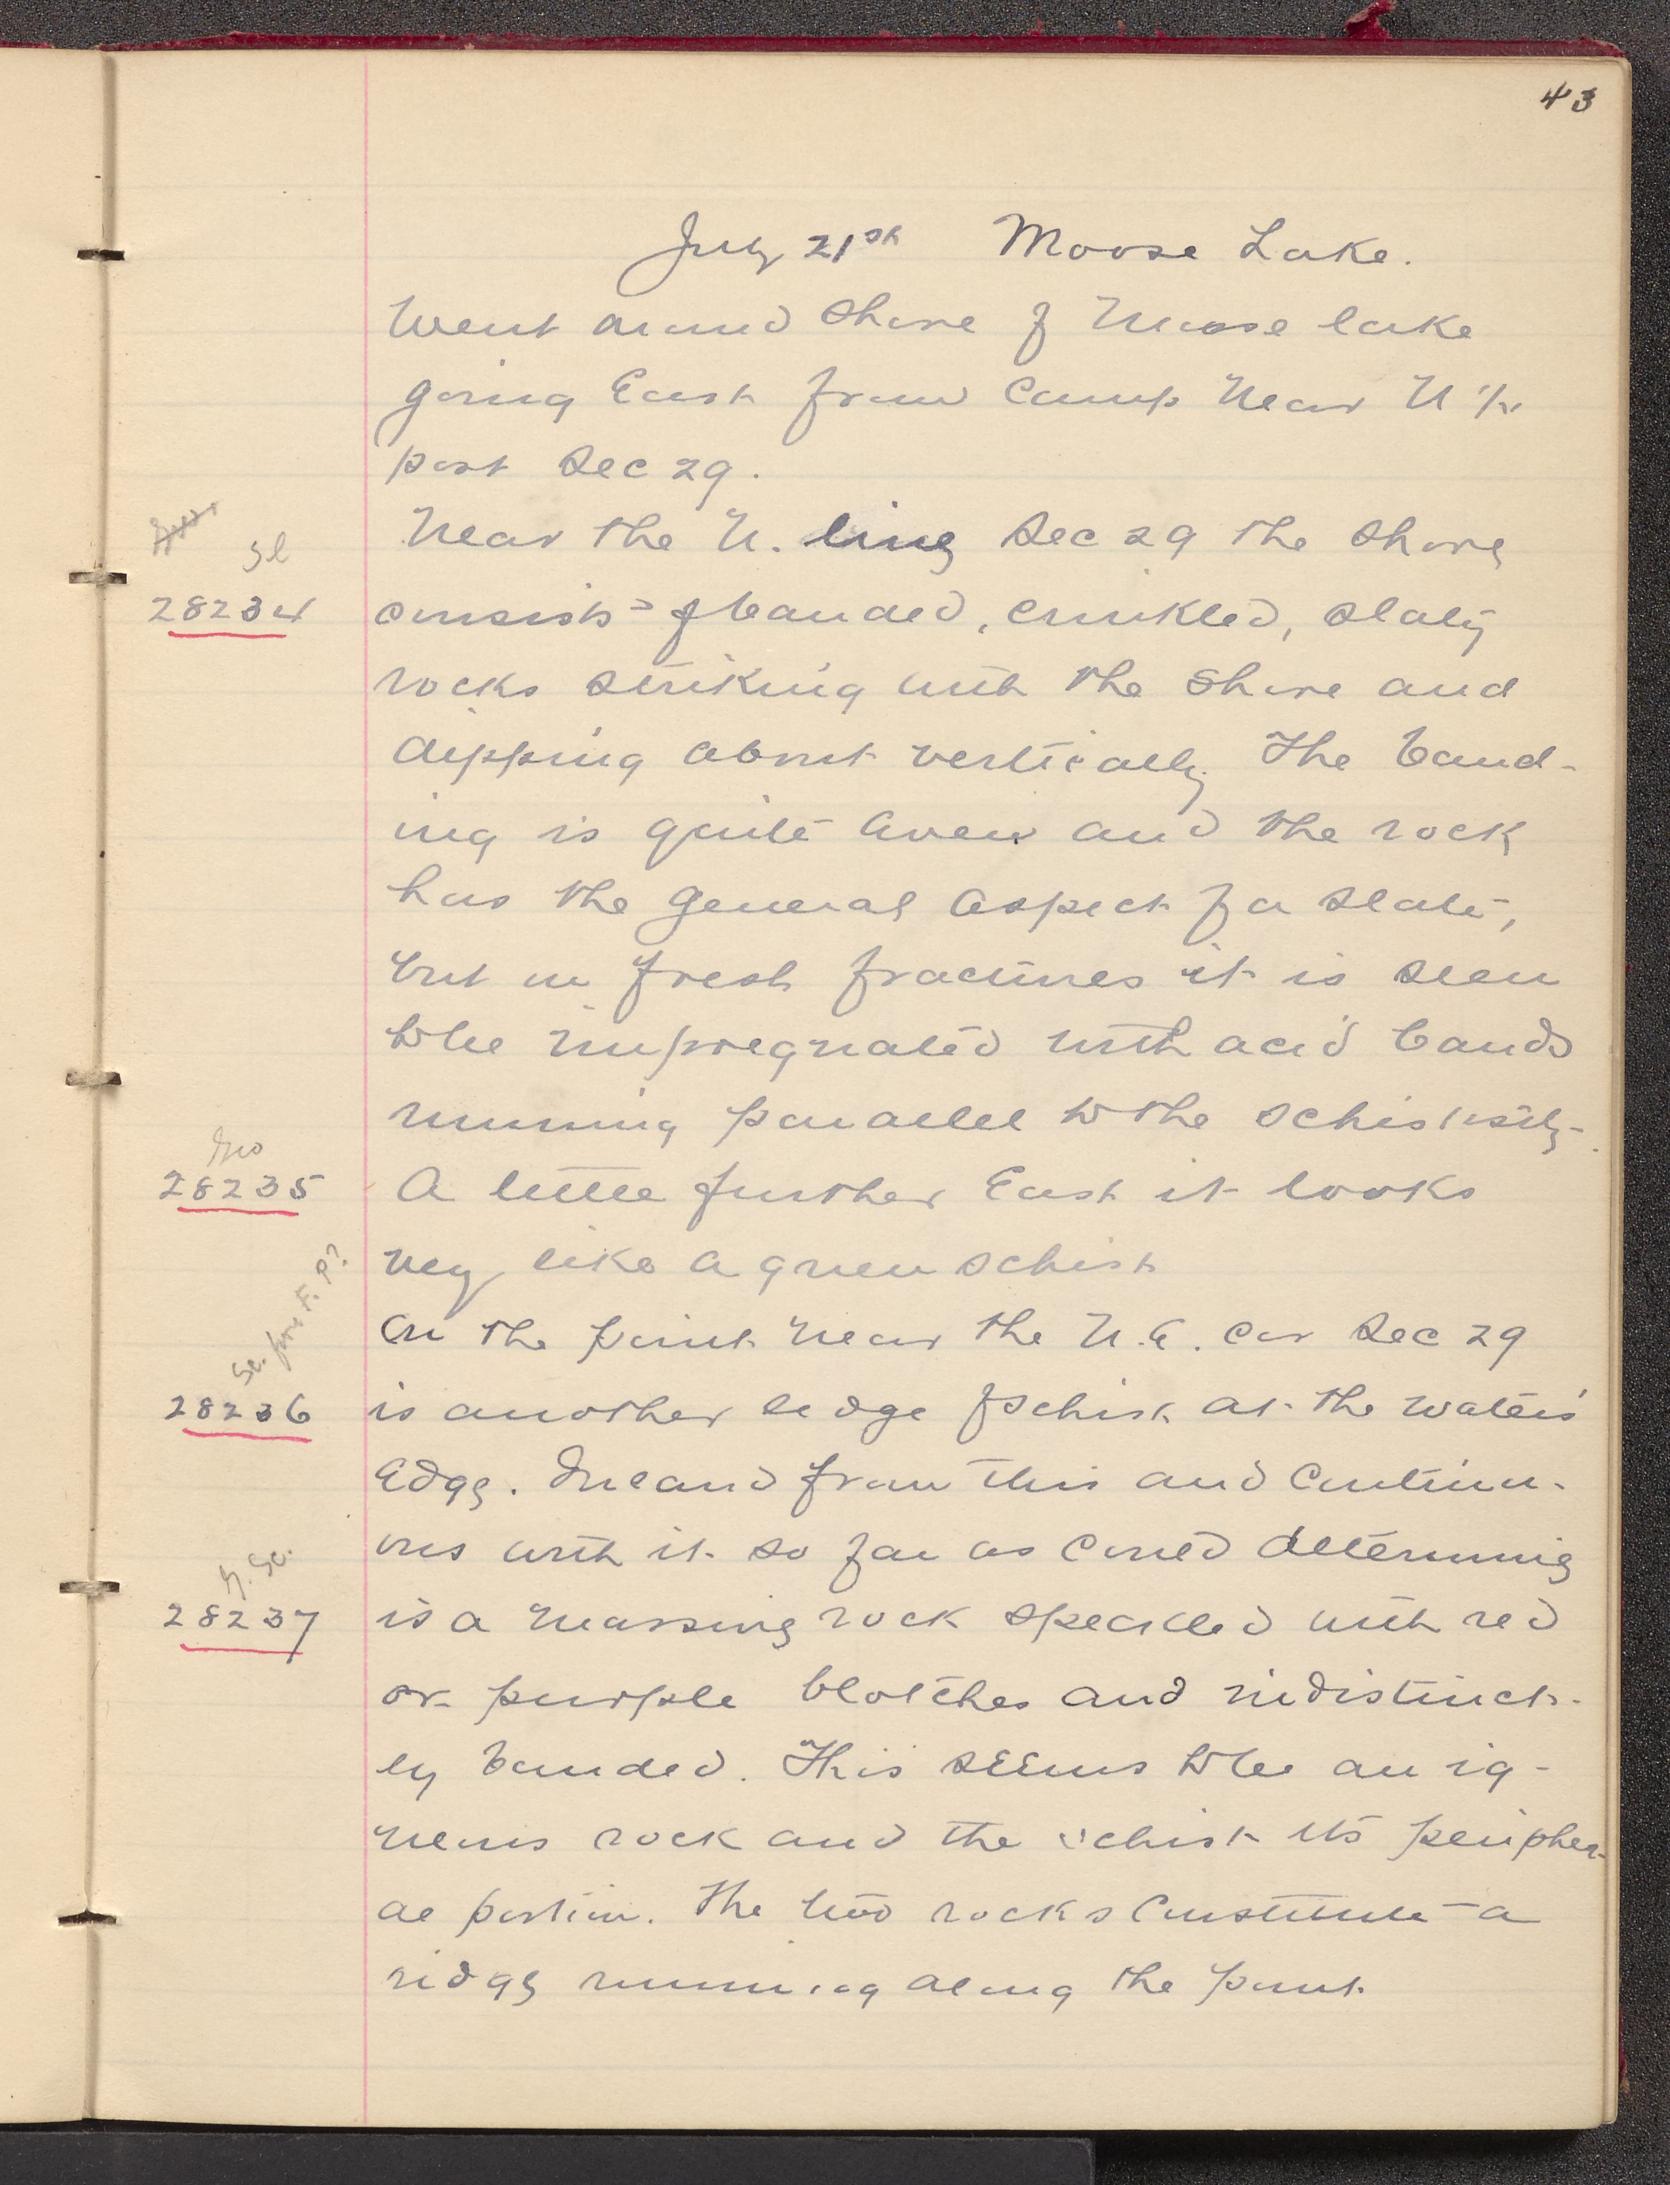 43
July 21st Moose Lake.
Went around shore of Moose lake
going East from Camp near N 1/4
post Sec 29.
Near the N. line Sec 29 the shore
Sl
28234 consists of banded, crinkled, slaty
rocks striking with the shore and
dipping about vertically. The band-
ing is quite even and the rock
has the general aspect of a slate,
but in fresh fractures it is seen
to be impregnated with acid bands
running parallel to the schistosity.
28235 A little further East it looks
very like a green schist
On the point near the N.E. cor Sec 29
Sc. F. P?
28236 is another ledge of schist at the water's
edge. Inland from this and continu-
ous with it so far as could determine
G. Sc.
28237 is a massive rock speckled with red
or purple blotches and indistinct-
ly banded. This seems to be an ig-
neous rock and the schist its peripher-
al portion. The two rocks constitute a
ridge running along the point